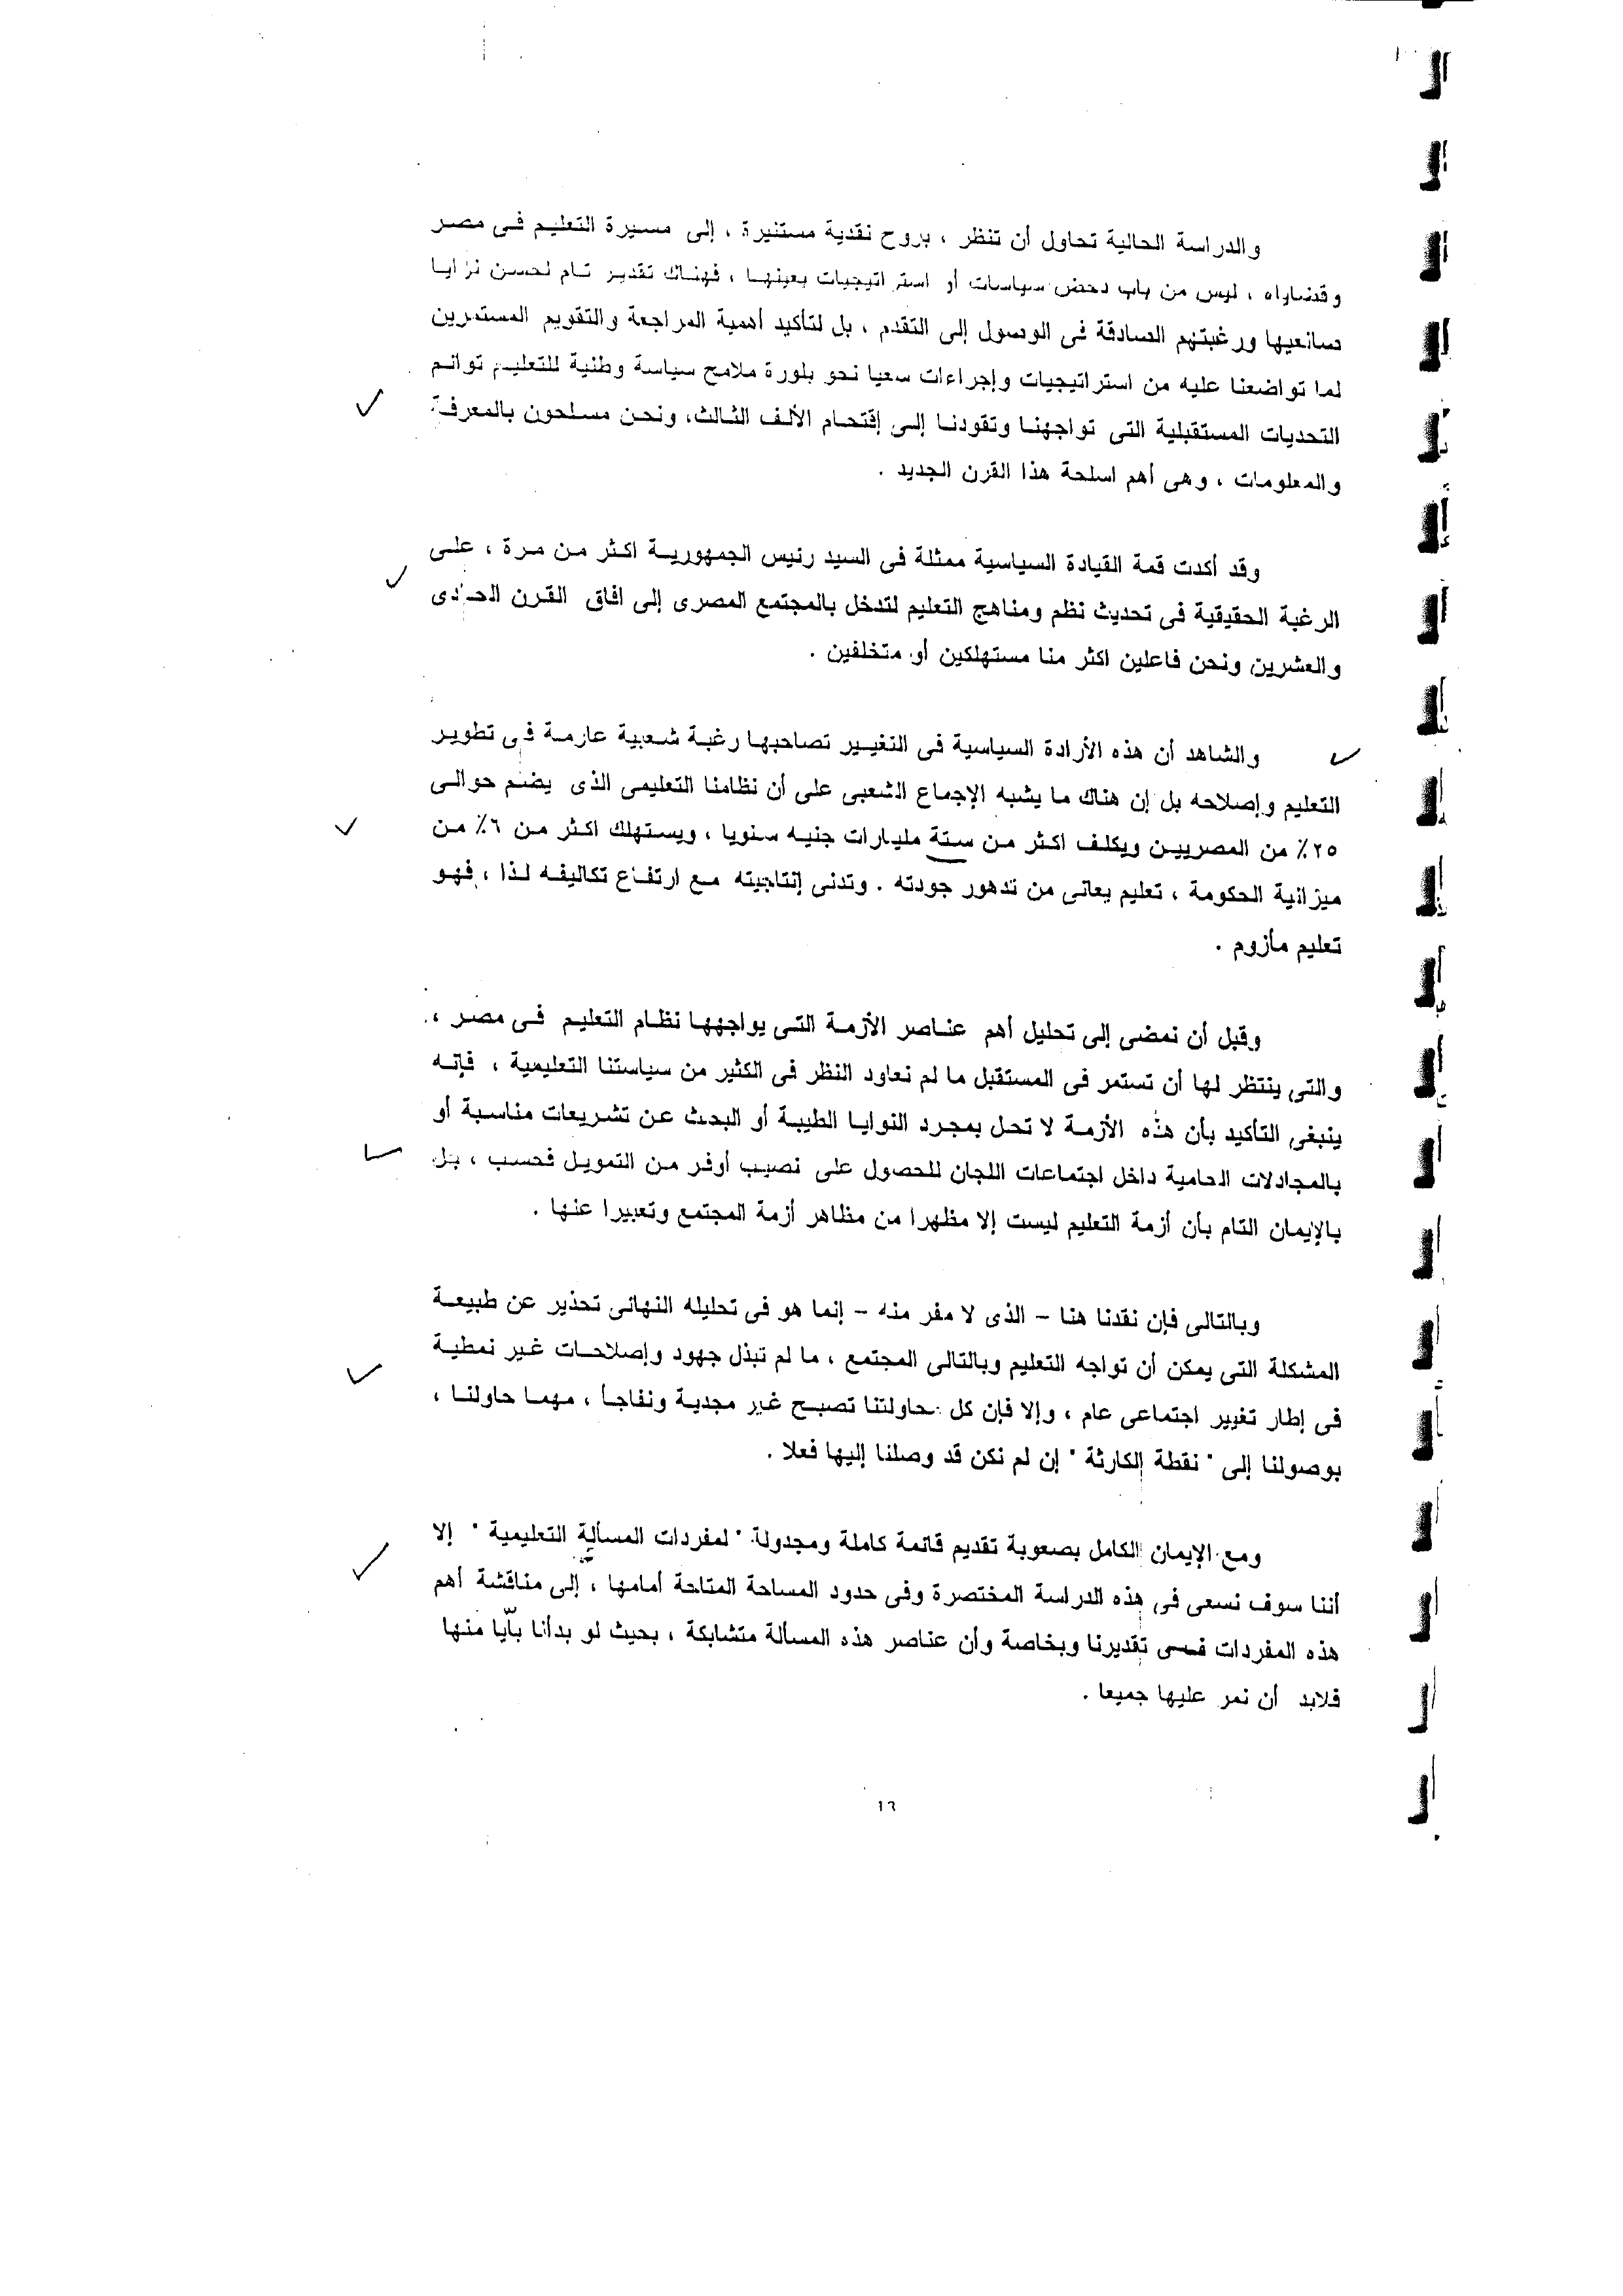 والدراسة الحالية تحاول أن تنظر ، بروح نقدية مستنيرة ، إلى مسيرة التعليم فى مصر
وقضاياه ، ليس من باب دحض سياسات أو استراتيجيات بعينها ، فهناك تقدير تام لحسن نوايا
صانعيها ورغبتهم الصادقة فى الوصول إلى التقدم ، بل لتأكيد أهمية المراجعة والتقويم المستمرين
لما تواضعنا عليه من استراتيجيات وإجراءات سعيا نحو بلورة ملامح سياسة وطنية للتعليم توائم
التحديات المستقبلية التى تواجهنا وتقودنا إلى إقتحام الألف الثالث، ونحن مسلحون بالمعرفة
والمعلومات ، وهى أهم اسلحة هذا القرن الجديد .
وقد أكدت قمة القيادة السياسية ممثلة فى السيد رئيس الجمهورية اكثر من مرة ، على
الرغبة الحقيقية فى تحديث نظم ومناهج التعليم لتدخل بالمجتمع المصرى إلى افاق القرن الحادى
والعشرين ونحن فاعلين اكثر منا مستهلكين أو متخلفين .
والشاهد أن هذه الأرادة السياسية فى التغيير تصاحبها رغبة شعبية عارمة فى تطوير
التعليم وإصلاحه بل إن هناك ما يشبه الإجماع الشعبى على أن نظامنا التعليمى الذى يضم حوالى
٢٥٪ من المصريين ويكلف اكثر من ستة مليارات جنيه سنويا ، ويستهلك اكثر من ٦٪ من
ميزانية الحكومة ، تعليم يعانى من تدهور جودته . وتدنى إنتاجيته مع ارتفاع تكاليفه لذا ، فهو
تعليم مأزوم .
وقبل أن نمضى إلى تحليل أهم عناصر الأزمة التى يواجهها نظام التعليم فى مصر ،
والتى ينتظر لها أن تستمر فى المستقبل ما لم نعاود النظر فى الكثير من سياستنا التعليمية ، فإنه
ينبغى التأكيد بأن هذه الأزمة لا تحل بمجرد النوايا الطيبة أو البحث عن تشريعات مناسبة أو
بالمجادلات الحامية داخل اجتماعات اللجان للحصول على نصيب أوفر من التمويل فحسب ، بل
بالإيمان التام بأن أزمة التعليم ليست إلا مظهرا من مظاهر أزمة المجتمع وتعبيرا عنها .
وبالتالى فإن نقدنا هنا – الذى لا مفر منه – إنما هو فى تحليله النهائى تحذير عن طبيعة
المشكلة التى يمكن أن تواجه التعليم وبالتالى المجتمع ، ما لم تبذل جهود وإصلاحات غير نمطية
فى إطار تغيير اجتماعى عام ، وإلا فإن كل حاولتنا تصبح غير مجدية ونفاجأ ، مهما حاولنا ،
بوصولنا إلى " نقطة الكارثة " إن لم نكن قد وصلنا إليها فعلا .
ومع الإيمان الكامل بصعوبة تقديم قائمة كاملة ومجدولة " لمفردات المسألة التعليمية " إلا
أننا سوف نسعى فى هذه الدراسة المختصرة وفى حدود المساحة المتاحة أمامها ، إلى مناقشة أهم
هذه المفردات فى تقديرنا وبخاصة وأن عناصر هذه المسألة متشابكة ، بحيث لو بدأنا بأيا منها
فلابد أن نمر عليها جميعا .
١٦